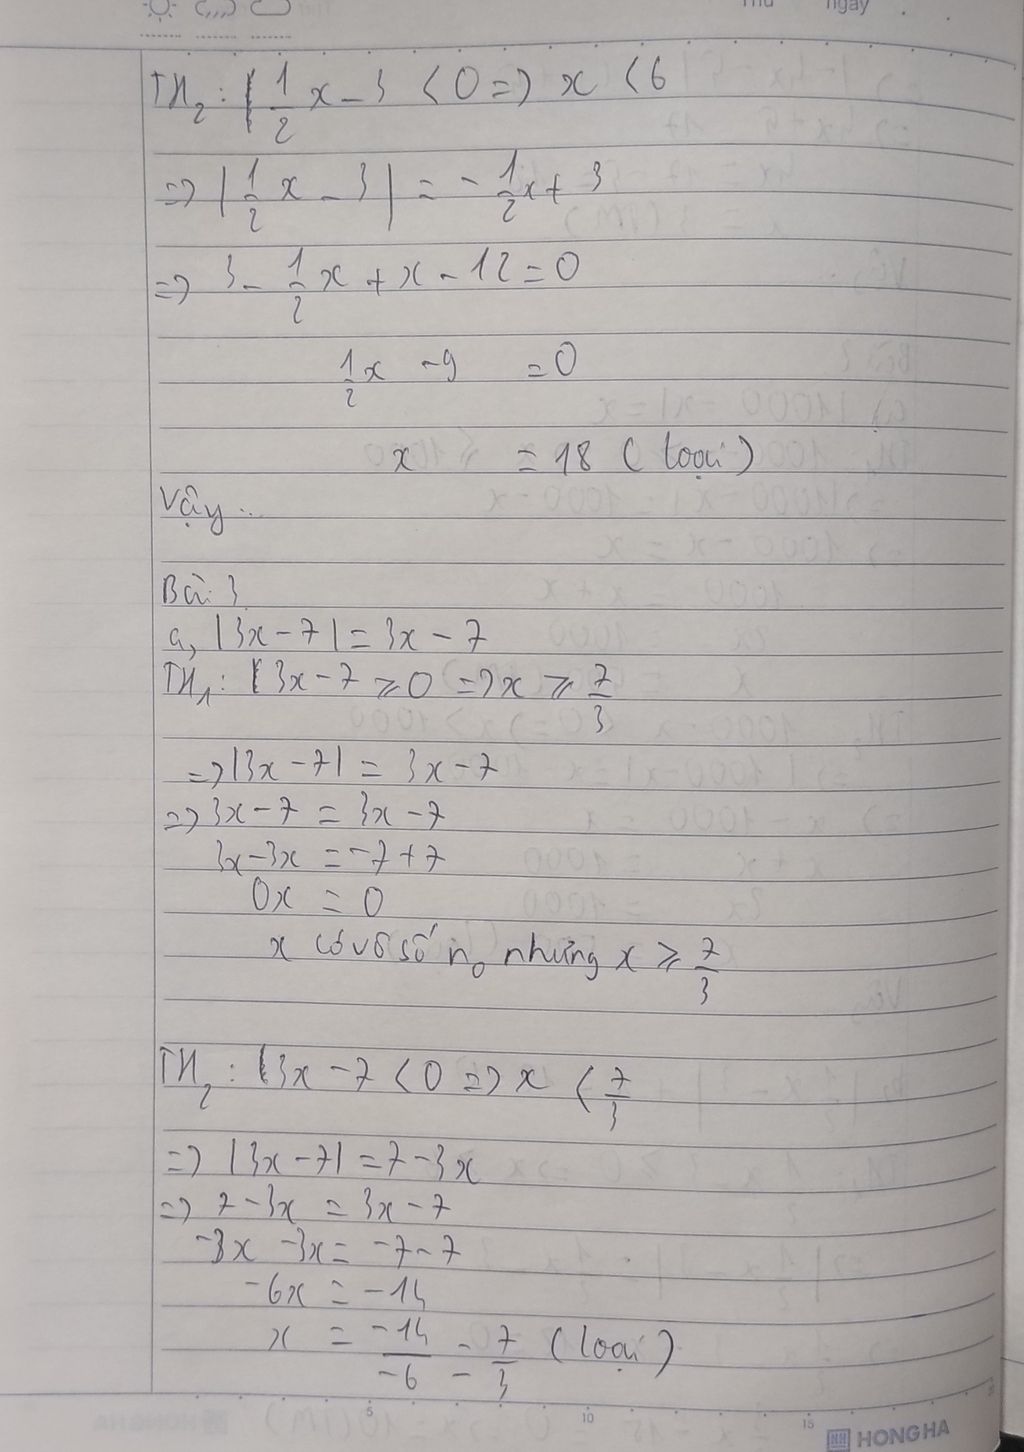 Thứ ngày
TH₂: 1/2 x - 3 < 0 => x < 6
=> |1/2 x - 3| = - 1/2 x + 3
=> 3 - 1/2 x + x - 12 = 0
1/2 x - 9 = 0
x = 18 (loại)
Vậy ..
Bài 3
a, |3x - 7| = 3x - 7
TH₁: 3x - 7 ⩾ 0 => x ⩾ 7/3
=> |3x - 7| = 3x - 7
=> 3x - 7 = 3x - 7
3x - 3x = -7 + 7
0x = 0
x có vô số n₀ nhưng x ⩾ 7/3
TH₂: 3x - 7 < 0 => x < 7/3
=> |3x - 7| = 7 - 3x
=> 7 - 3x = 3x - 7
-3x - 3x = -7 - 7
-6x = -14
x = -14/-6 = 7/3 (loại)
5 10 15
HH HONG HA